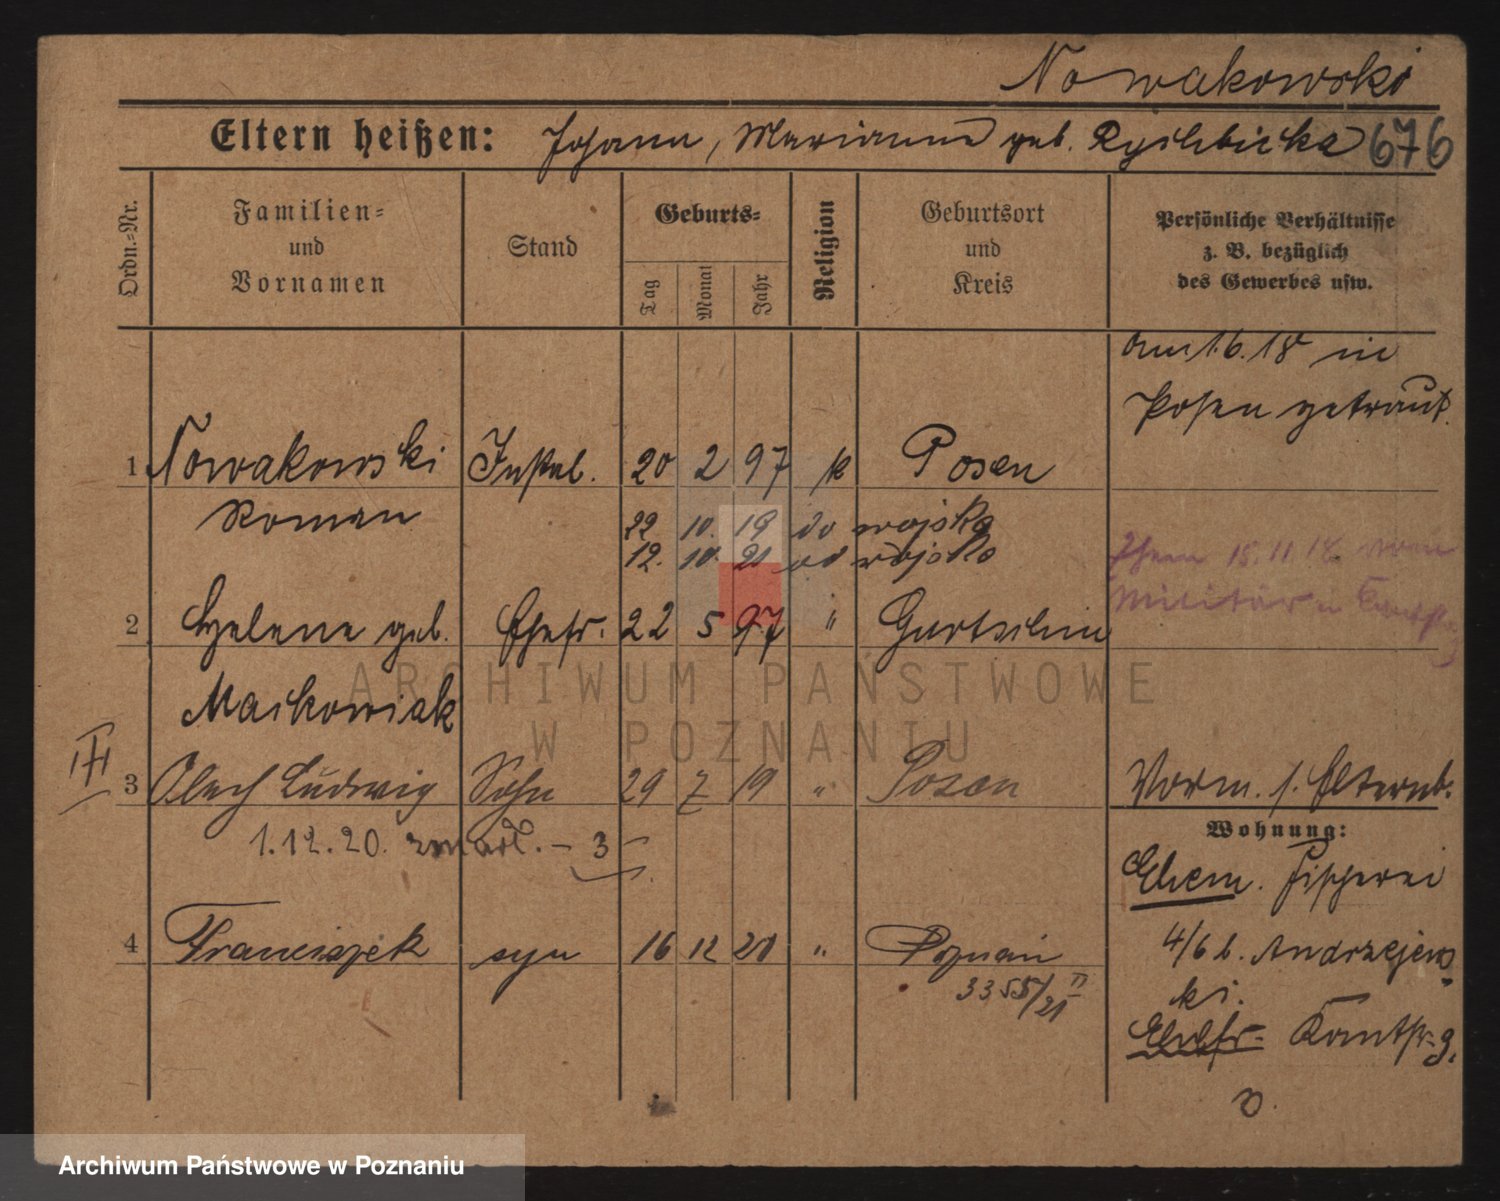 Nowakowski
Eltern heißen: Johann, Marianna geb. Rychlicka 676
Ordn.-Nr.
Familien-
und
Vornamen
Stand
Geburts-
Tag
Monat
Jahr
Religion
Geburtsort
und
Kreis
Persönliche Verhältnisse
z. B. bezüglich
des Gewerbes usw.
am 1.6.18 in
Posen getraut.
1 Nowakowski Instal. 20 2 97 k Posen
Roman
22 10. 19 do wojska
12. 10. 21 od wojska
Ehem 15.11.18 vom
Militär in
2 Helene geb. Ehefr. 22 5 97 " Gurtschin
Maikowiak
III
3 Ludwig Sohn 29 7 19 " Posen
Vorm. s. Elternb.
1.12.20. zmarł. – 3
Wohnung:
Ehem. Fischerei
4 Franciszek syn 16 12 20 " Poznań
4/6 b. Andrzejews
3355/21 II
ki.
Ehefr. Kantstr. 9.
Archiwum Państwowe
w Poznaniu
Archiwum Państwowe w Poznaniu